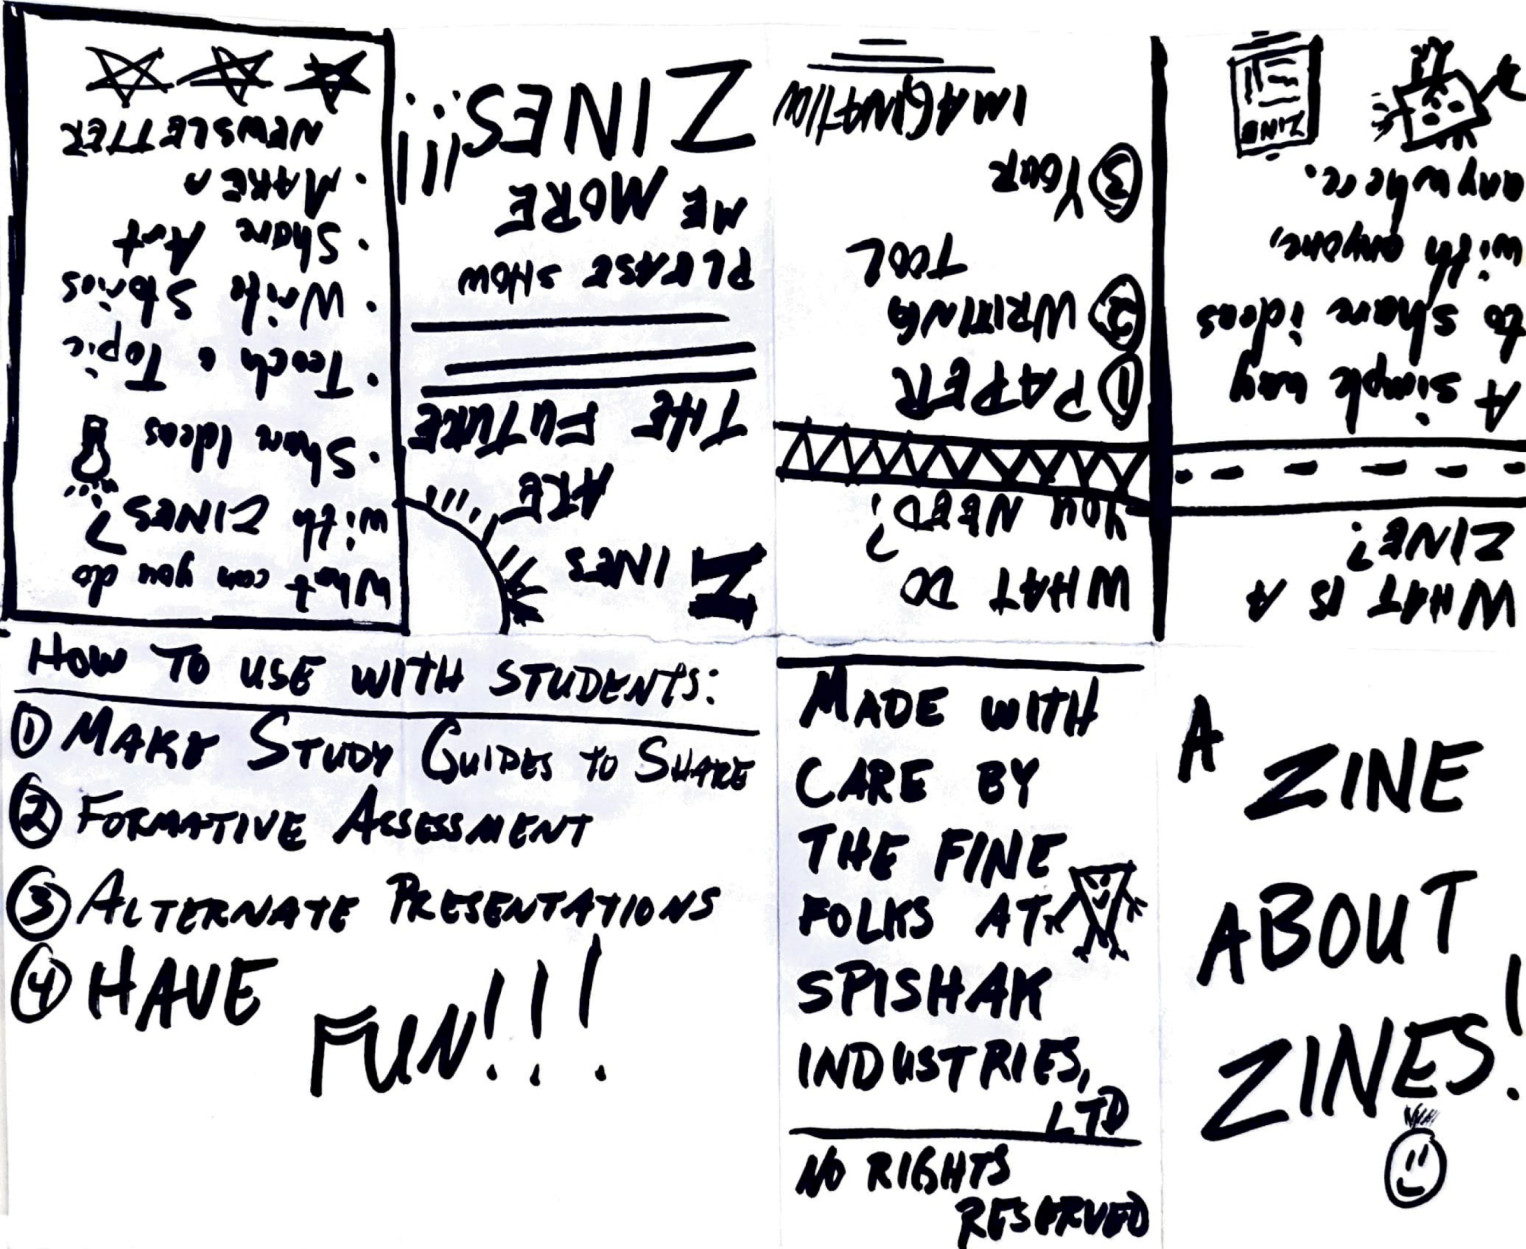 A
ZINE
ABOUT
ZINES!
WHAT IS A
ZINE?
A simple way
to share ideas
with anyone,
anywhere.
ZINE
WHAT DO
YOU NEED?
① PAPER
② WRITING
TOOL
③ YOUR
IMAGINATION
ZINES
ARE
THE FUTURE
PLEASE SHOW
ME MORE
ZINES!!!
What can you do
with ZINES?
• Share Ideas
• Teach a Topic
• Write Stories
• Share Art
• MAKE A
NEWSLETTER
HOW TO USE WITH STUDENTS:
① MAKE STUDY GUIDES TO SHARE
② FORMATIVE ASSESSMENT
③ ALTERNATE PRESENTATIONS
④ HAVE
FUN!!!
MADE WITH
CARE BY
THE FINE
FOLKS AT
SPISHAK
INDUSTRIES,
LTD
NO RIGHTS
RESERVED